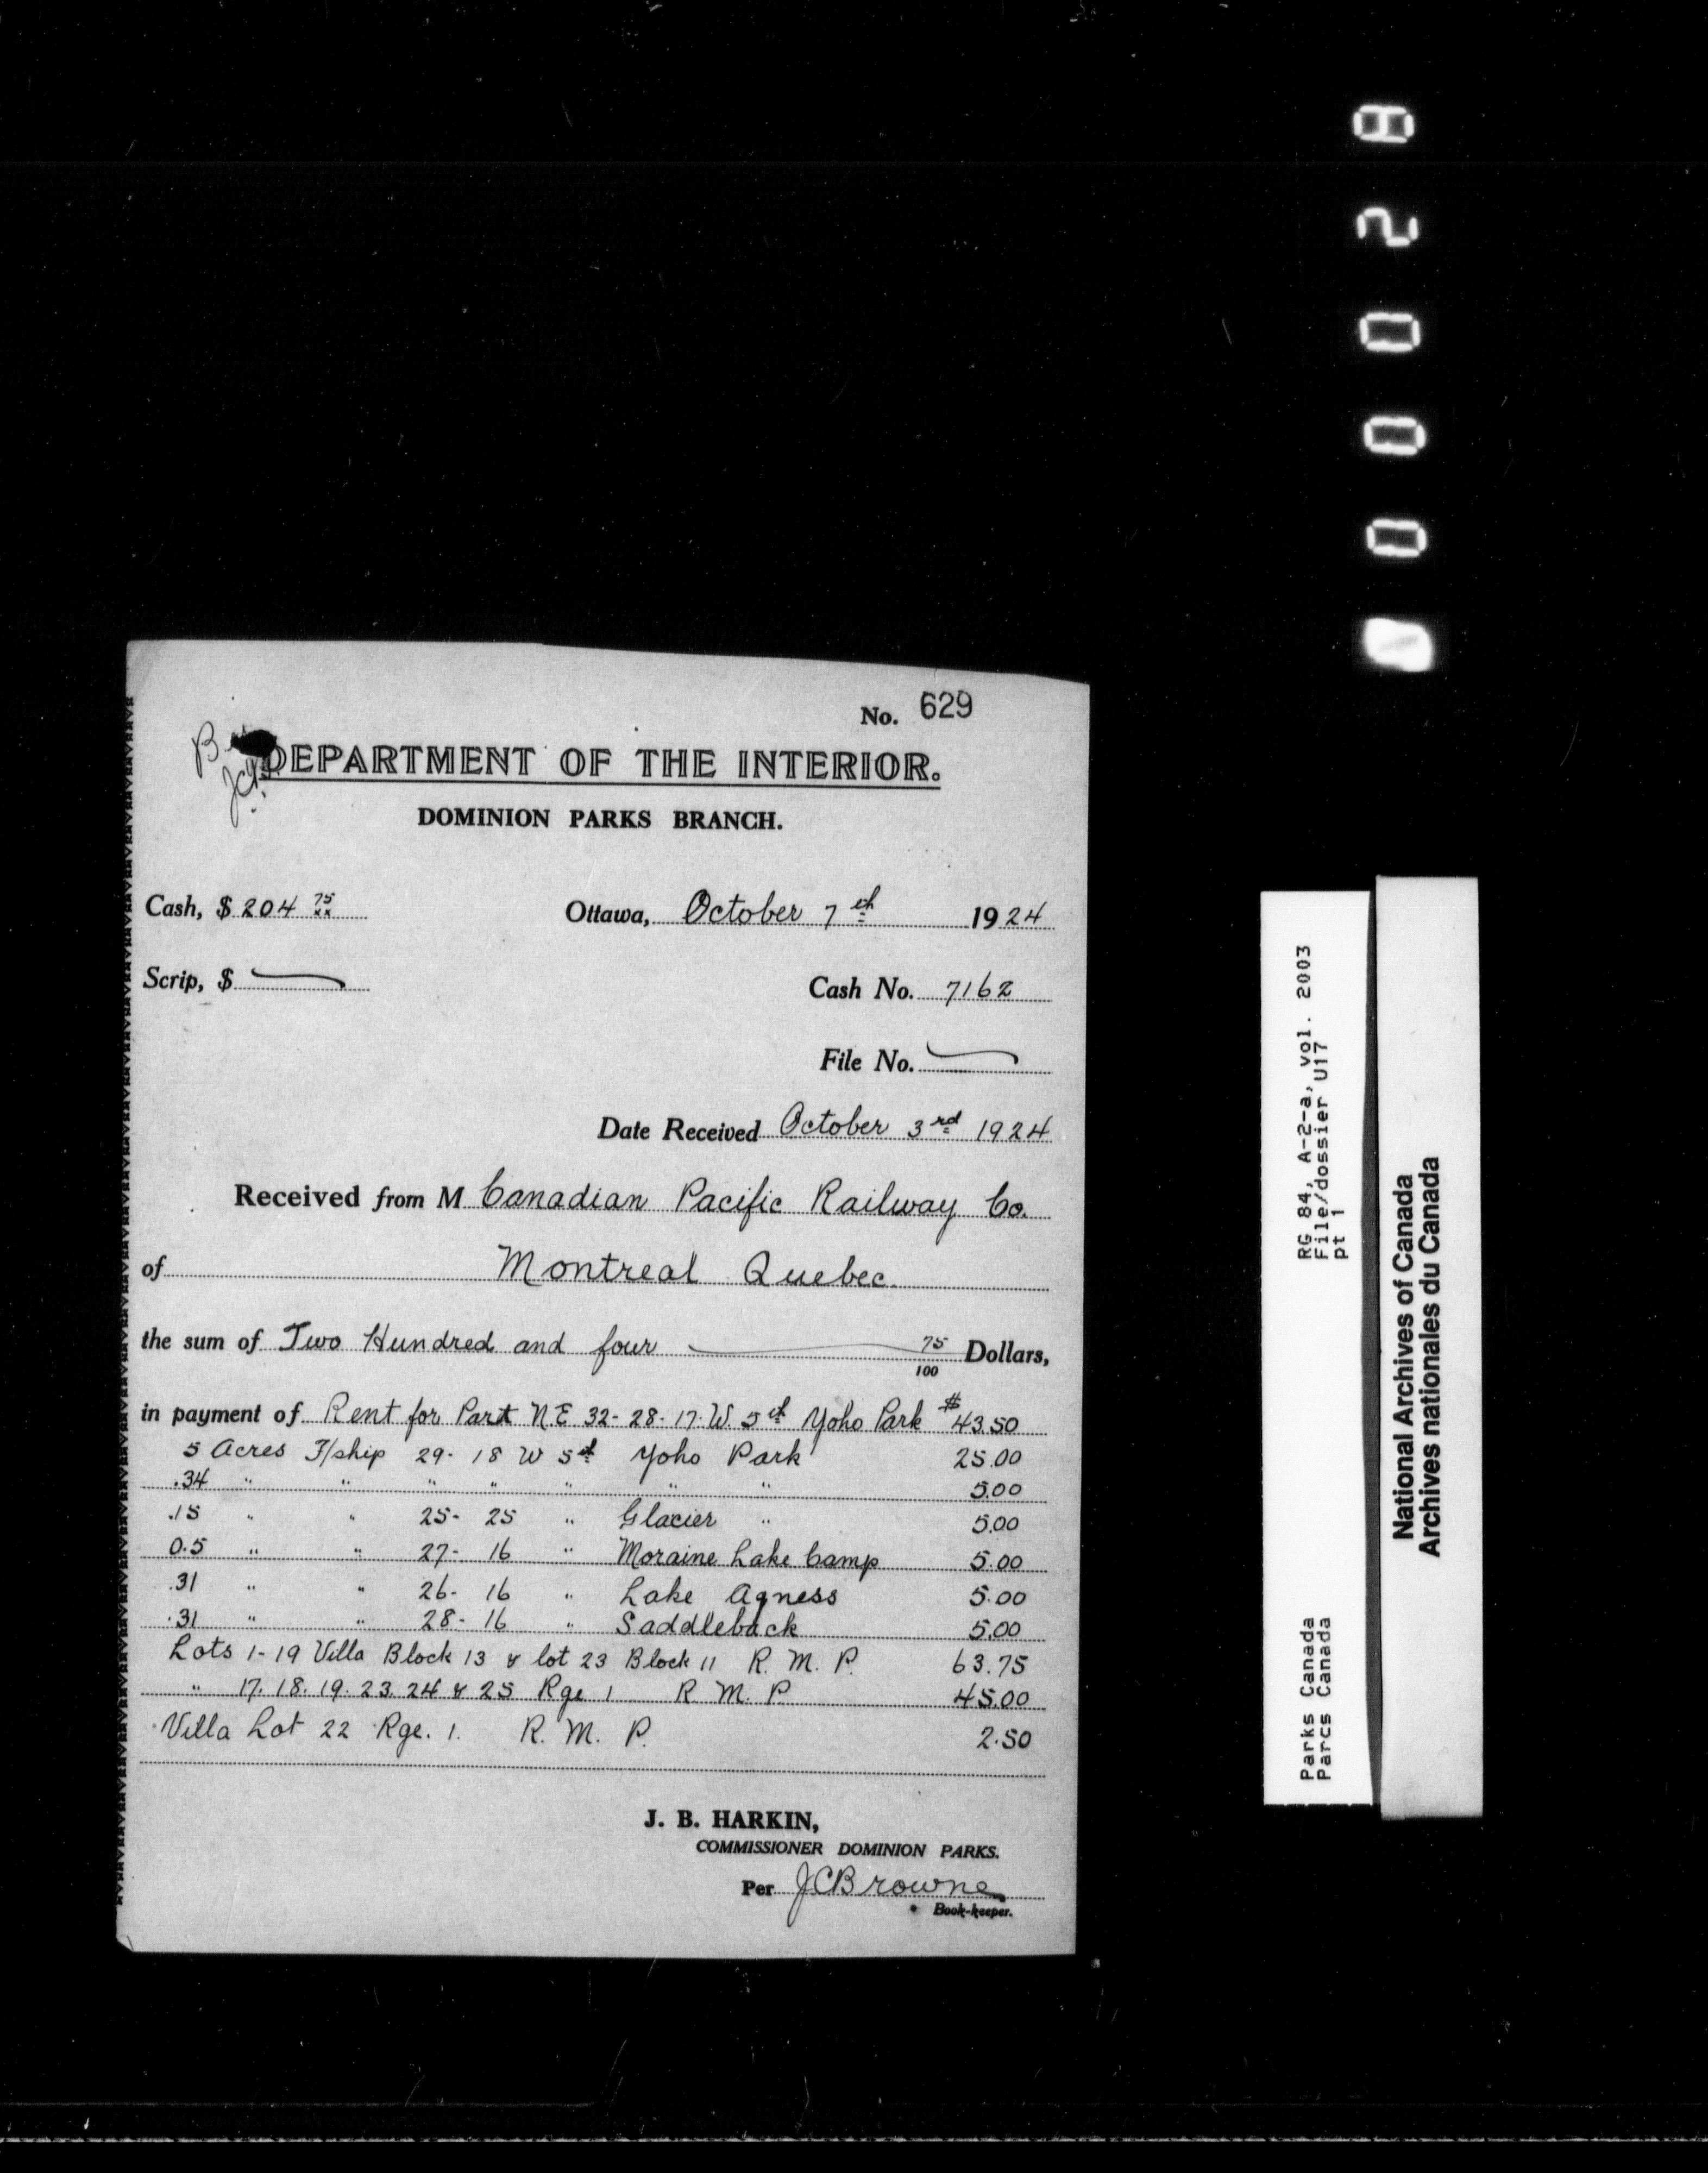 No. 629
DEPARTMENT OF THE INTERIOR.
DOMINION PARKS BRANCH.
Cash, $ 204 75/xx
Ottawa, October 7th 1924
Scrip, $
Cash No. 7162
File No.
Date Received October 3rd 1924
Received from M Canadian Pacific Railway Co.
of Montreal Quebec.
the sum of Two Hundred and four 75/100 Dollars,
in payment of Rent for Part N.E 32-28-17. W. 5th Yoho Park $43.50
5 Acres T/ship 29-18 W 5th Yoho Park 25.00
.34 " " " " " " " 5.00
.15 " " 25-25 " Glacier " 5.00
0.5 " " 27-16 " Moraine Lake Camp 5.00
.31 " " 26-16 " Lake Agness 5.00
.31 " " 28-16 " Saddleback 5.00
Lots 1-19 Villa Block 13 & lot 23 Block 11 R. M. P. 63.75
" 17. 18. 19. 23. 24 & 25 Rge 1 R. M. P 45.00
Villa Lot 22 Rge. 1. R. M. P. 2.50
J. B. HARKIN,
COMMISSIONER DOMINION PARKS.
Per JCBrowne
Book-keeper.
00028
RG 84, A-2-a, vol. 2003
File/dossier U17
pt 1
Parks Canada
Parcs Canada
National Archives of Canada
Archives nationales du Canada